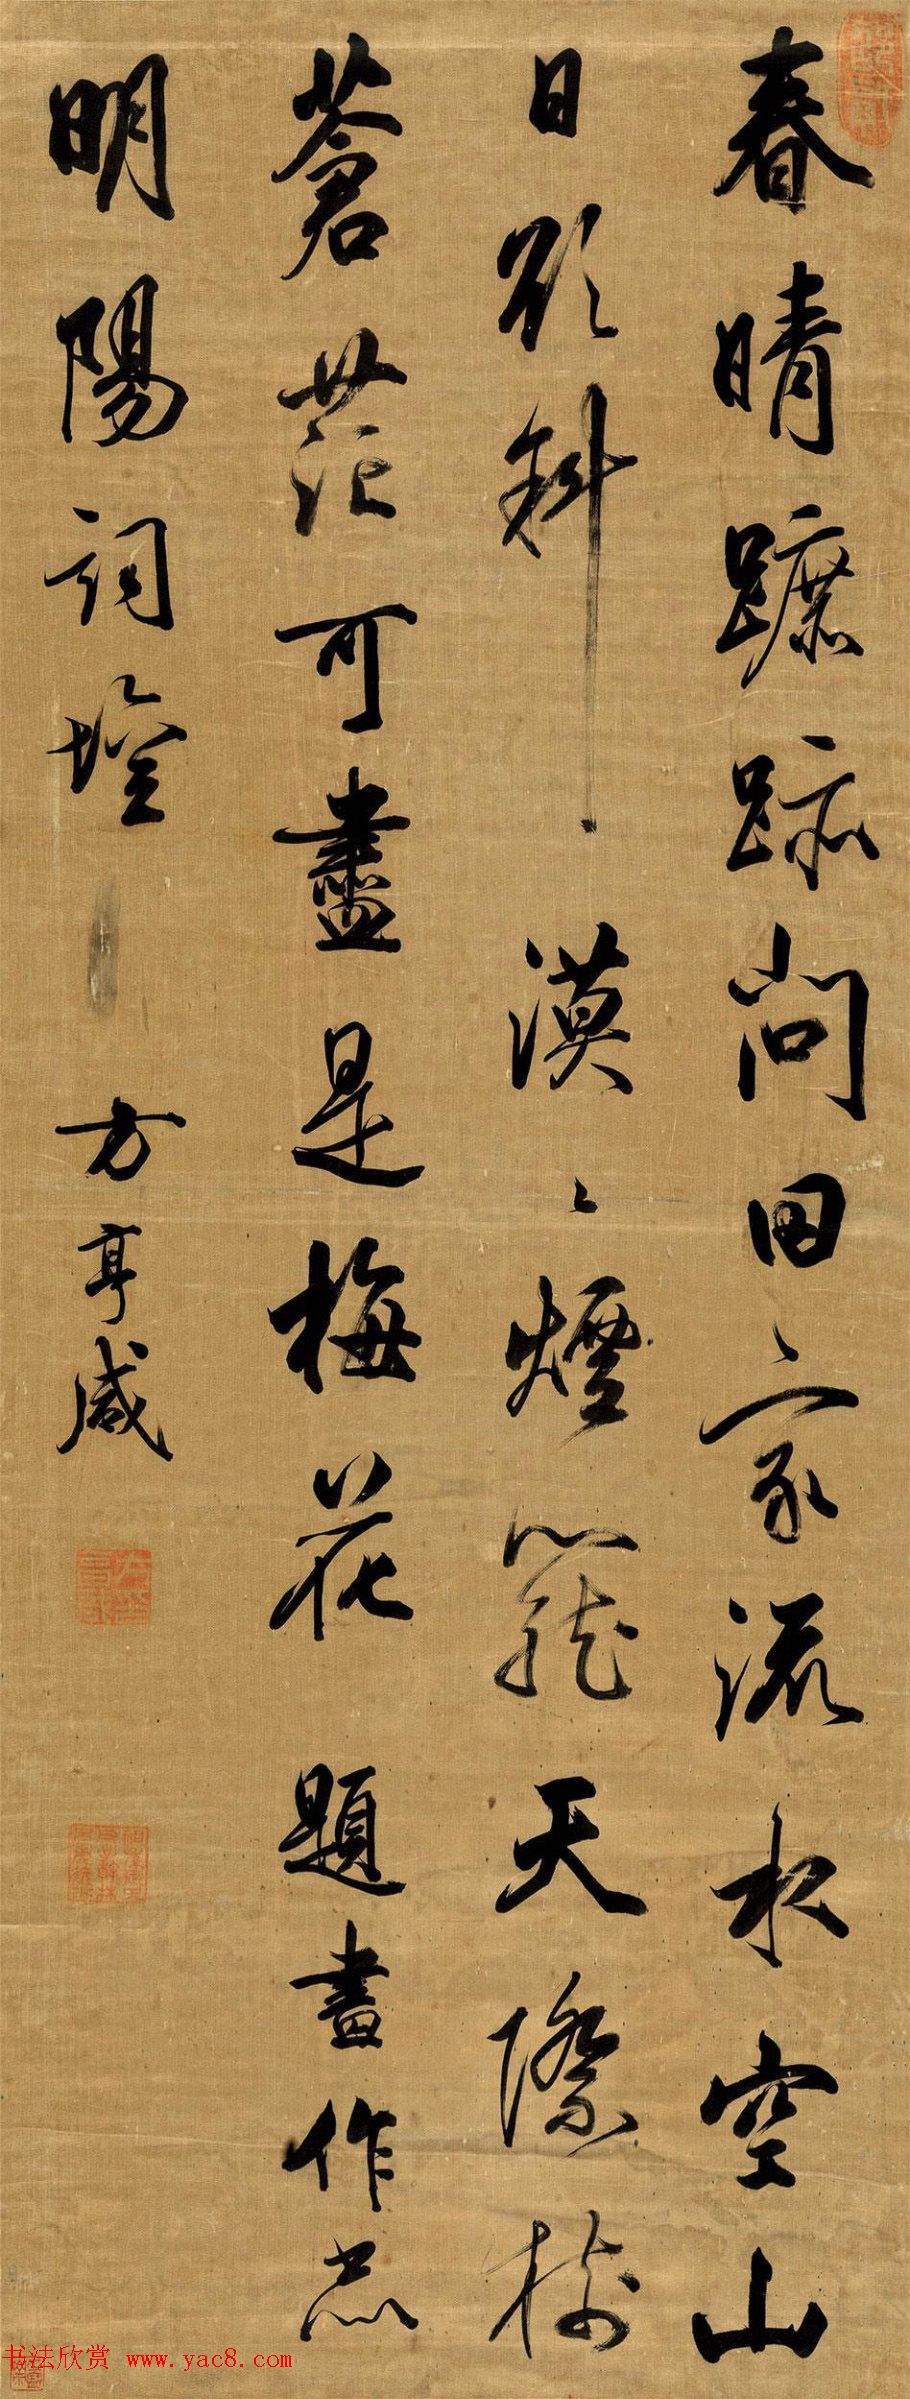 春晴躡跡問田家流水空山
日欲斜漠〻煙籠天際樹
蒼茫可盡是梅花題畫作㒰
明陽詞壇
方亨咸
书法欣赏 www.yac8.com